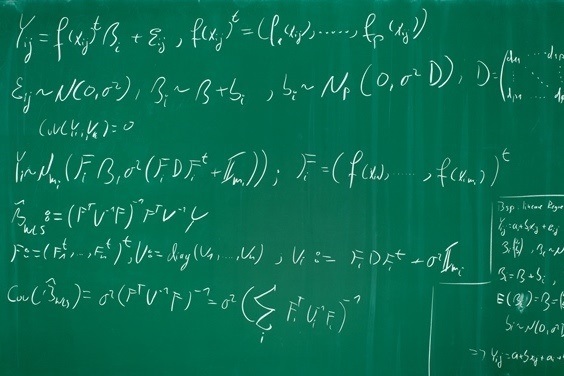 Y_ij = f(x_ij)^t B_i + ε_ij , f(x_ij)^t = (f_1(x_ij), ....., f_p(x_ij))
ε_ij ~ N(0, σ²), B_i ~ B + b_i , b_i ~ N_p (0, σ² D), D = (d_11 ... d_1p
d_p1 ... d_p
Cov(Y_i, Y_k) = 0
Y_i ~ N_mi (F_i B, σ² (F_i D F_i^t + I_mi)) ; F_i = (f(x_i1), ....., f(x_imi))^t
B̂_WLS := (F^T V^-1 F)^-1 F^T V^-1 Y
F := (F_1^t, ..., F_n^t)^t, V := diag(V_1, ..., V_n) , V_i := F_i D F_i^t + σ² I_mi
Cov(B̂_WLS) = σ² (F^T V^-1 F)^-1 = σ² (Σ_i F_i^T V_i^-1 F_i)^-1
Bsp. lineare Regre
Y_ij = a + b x_ij + e_ij
B_i = B + b_i ,
E(B_i) = B = (
b_i ~ N(0, σ² D
=> Y_ij = a + b x_ij + a